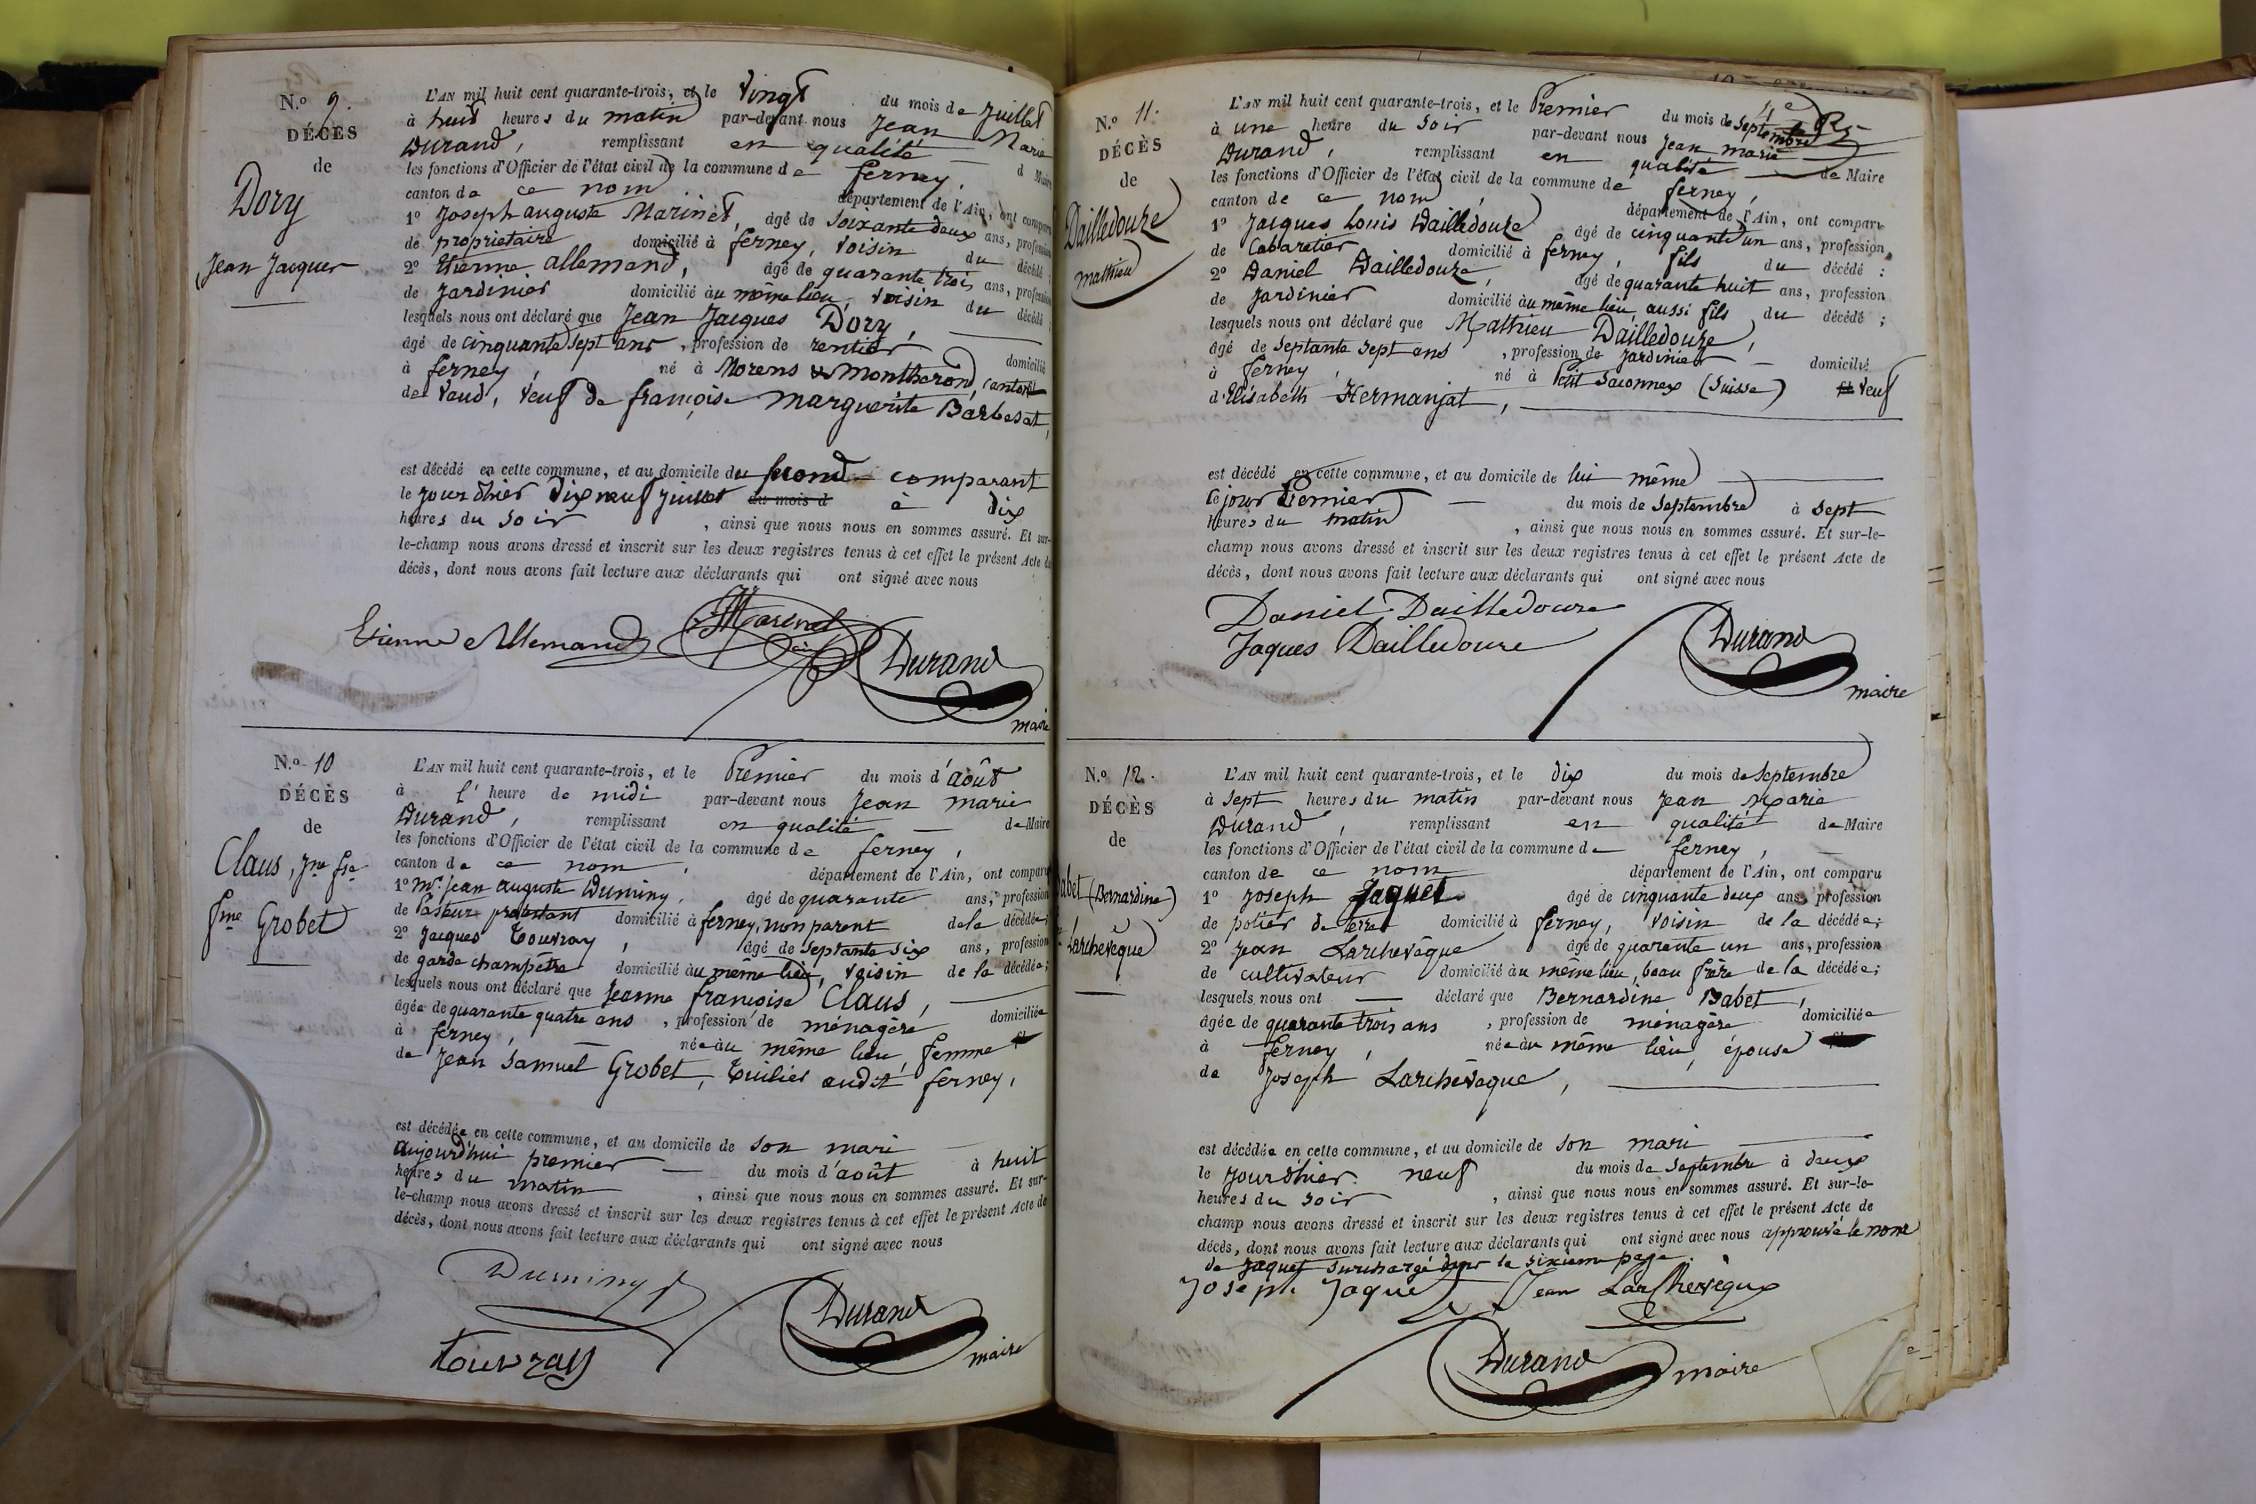 N.o 9.
DÉCÈS
de
Dory
Jean Jacques
L'AN mil huit cent quarante-trois, et le vingt du mois de Juillet
à huit heures du matin par-devant nous Jean Marie
Durand, remplissant en qualité de Maire
les fonctions d'Officier de l'état civil de la commune de ferney,
canton de ce nom département de l'Ain, ont comparu
1o Joseph auguste Marinet, âgé de soixante deux ans, profession
de proprietaire domicilié à ferney, voisin du décédé;
2o Etienne allemand, âgé de quarante trois ans, profession
de Jardinier domicilié au même lieu, voisin du décédé;
lesquels nous ont déclaré que Jean Jacques Dory,
âgé de cinquante sept ans, profession de rentier domicilié
à ferney, né à Morens montherond, canton
de Vaud, veuf de françoise marguerite Barbesat,
est décédé en cette commune, et au domicile du second comparant
le jour d'hier dix neuf juillet du mois d à dix
heures du soir, ainsi que nous nous en sommes assuré. Et sur-
le-champ nous avons dressé et inscrit sur les deux registres tenus à cet effet le présent Acte de
décès, dont nous avons fait lecture aux déclarants qui ont signé avec nous
Etienne Allemand Marinet Durand
maire
N.o 10
DÉCÈS
de
Claus, Jne fse
fme Grobet
L'AN mil huit cent quarante-trois, et le Premier du mois d'août
à l'heure de midi par-devant nous Jean marie
Durand, remplissant en qualité de Maire
les fonctions d'Officier de l'état civil de la commune de ferney,
canton de ce nom, département de l'Ain, ont comparu
1o Mr. Jean auguste Duminy, âgé de quarante ans, profession
de Pasteur protestant domicilié à ferney, non parent de la décédée;
2o Jacques Touvray, âgé de septante six ans, profession
de garde champêtre domicilié au même lieu, voisin de la décédée;
lesquels nous ont déclaré que Jeanne françoise Claus,
âgée de quarante quatre ans, profession de ménagère domiciliée
à ferney, née au même lieu, femme
de Jean Samuel Grobet, Tuilier audit ferney,
est décédée en cette commune, et au domicile de son mari
aujourd'hui premier du mois d'août à huit
heures du matin, ainsi que nous nous en sommes assuré. Et sur-
le-champ nous avons dressé et inscrit sur les deux registres tenus à cet effet le présent Acte de
décès, dont nous avons fait lecture aux déclarants qui ont signé avec nous
Duminy Durand
Touvray maire
N.o 11.
DÉCÈS
de
Dailledouze
mathieu
4e
L'AN mil huit cent quarante-trois, et le Premier du mois de septembre
à une heure du soir par-devant nous Jean marie
Durand, remplissant en qualité de Maire
les fonctions d'Officier de l'état civil de la commune de ferney,
canton de ce nom, département de l'Ain, ont comparu
1o Jacques Louis Dailledouze âgé de cinquante un ans, profession
de Cabaretier domicilié à ferney, fils du décédé:
2o Daniel Dailledouze, âgé de quarante huit ans, profession
de Jardinier domicilié au même lieu, aussi fils du décédé;
lesquels nous ont déclaré que Mathieu Dailledouze,
âgé de septante sept ans, profession de jardinier domicilié
à ferney, né à Petit Saconnex (Suisse) veuf
d'Elisabeth Hermanjat,
est décédé en cette commune, et au domicile de lui même
ce jour Premier du mois de septembre à sept
heures du matin, ainsi que nous nous en sommes assuré. Et sur-le-
champ nous avons dressé et inscrit sur les deux registres tenus à cet effet le présent Acte de
décès, dont nous avons fait lecture aux déclarants qui ont signé avec nous
Daniel Dailledouze
Jaques Dailledouze Durand
maire
N.o 12.
DÉCÈS
de
Babet (Bernardine)
Larchevêque
L'AN mil huit cent quarante-trois, et le dix du mois de septembre
à sept heures du matin par-devant nous Jean Marie
Durand, remplissant en qualité de Maire
les fonctions d'Officier de l'état civil de la commune de ferney,
canton de ce nom département de l'Ain, ont comparu
1o Joseph Jaquet âgé de cinquante deux ans profession
de potier de terre domicilié à ferney, voisin de la décédée;
2o Jean Larchevêque âgé de quarante un ans, profession
de cultivateur domicilié au même lieu, beau frère de la décédée;
lesquels nous ont déclaré que Bernardine Babet,
âgée de quarante trois ans, profession de ménagère domiciliée
à ferney, née au même lieu, épouse
de Joseph Larchevêque,
est décédée en cette commune, et au domicile de son mari
le jour d'hier neuf du mois de septembre à deux
heures du soir, ainsi que nous nous en sommes assuré. Et sur-le-
champ nous avons dressé et inscrit sur les deux registres tenus à cet effet le présent Acte de
décès, dont nous avons fait lecture aux déclarants qui ont signé avec nous approuvé le nom
de Jaquet surchargé dans la sixième page.
Joseph Jaquet Jean Larchevêque
Durand maire